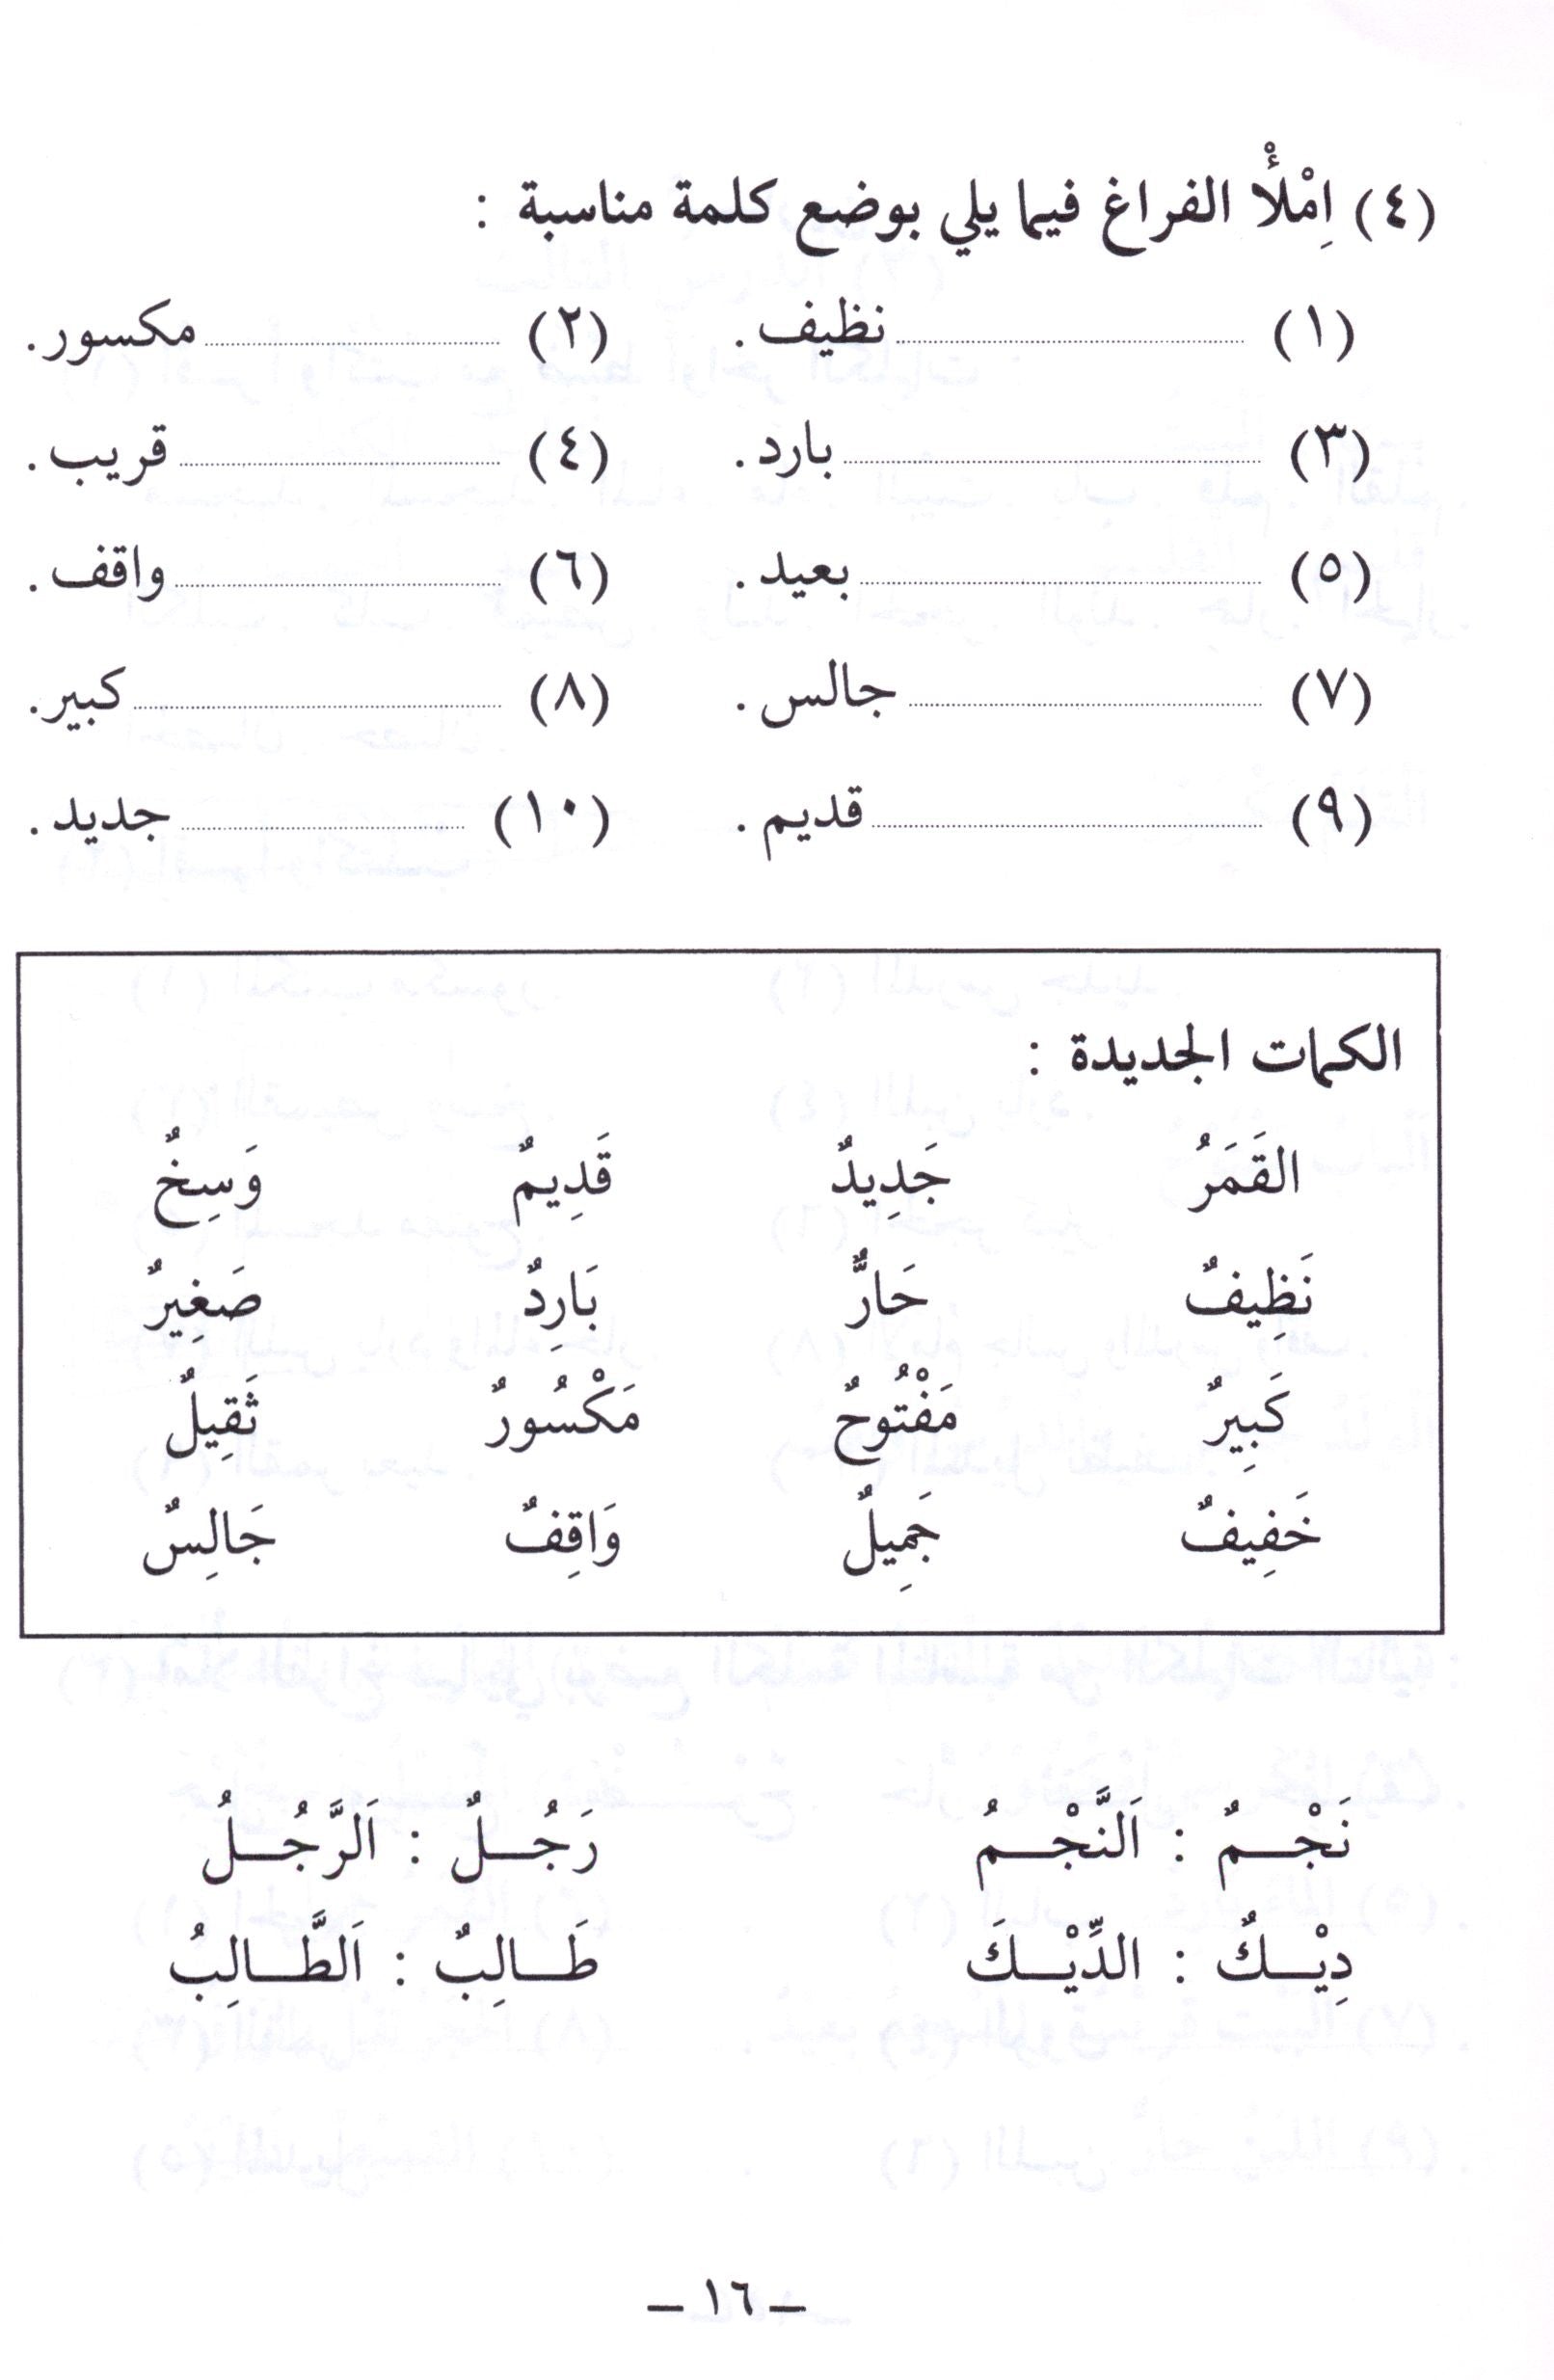 (٤) اِمْلَأْ الفراغ فيما يلي بوضع كلمة مناسبة :
(١) ........ نظيف . (٢) ........ مكسور .
(٣) ........ بارد . (٤) ........ قريب .
(٥) ........ بعيد . (٦) ........ واقف .
(٧) ........ جالس . (٨) ........ كبير .
(٩) ........ قديم . (١٠) ........ جديد .
الكمات الجديدة :
القَمَرُ جَدِيدٌ قَدِيمٌ وَسِخٌ
نَظِيفٌ حَارٌّ بَارِدٌ صَغِيرٌ
كَبِيرٌ مَفْتُوحٌ مَكْسُورٌ ثَقِيلٌ
خَفِيفٌ جَمِيلٌ وَاقِفٌ جَالِسٌ
نَجْـمٌ : اَلنَّجْـمُ رَجُـلٌ : اَلرَّجُـلُ
دِيْـكٌ : الدِّيْـكَ طَـالِبٌ : اَلطَّـالِبُ
– ١٦ –